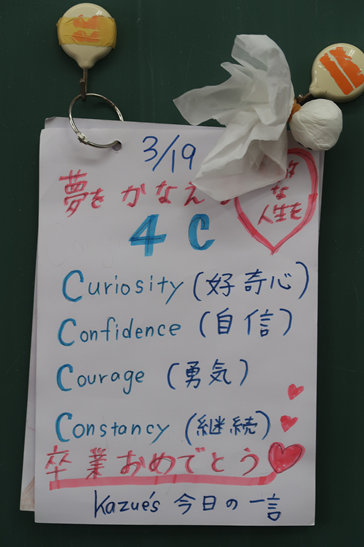 3/19
夢をかなえる
な
人生を
4 C
Curiosity (好奇心)
Confidence (自信)
Courage (勇気)
Constancy (継続)
卒業おめでとう
Kazue's 今日の一言